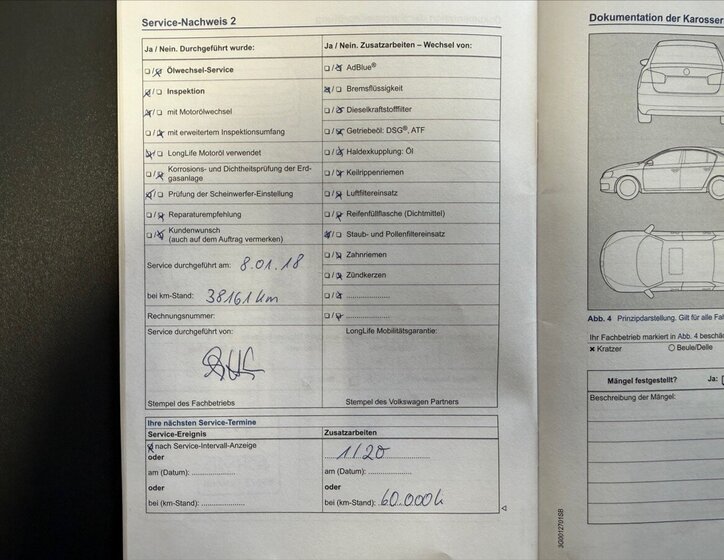 Service-Nachweis 2
Ja / Nein. Durchgeführt wurde:
Ja / Nein. Zusatzarbeiten – Wechsel von:
Ölwechsel-Service
AdBlue®
Inspektion
Bremsflüssigkeit
mit Motorölwechsel
Dieselkraftstofffilter
mit erweitertem Inspektionsumfang
Getriebeöl: DSG®, ATF
LongLife Motoröl verwendet
Haldexkupplung: Öl
Korrosions- und Dichtheitsprüfung der Erd-
gasanlage
Keilrippenriemen
Prüfung der Scheinwerfer-Einstellung
Luftfiltereinsatz
Reparaturempfehlung
Reifenfüllflasche (Dichtmittel)
Kundenwunsch
(auch auf dem Auftrag vermerken)
Staub- und Pollenfiltereinsatz
Zahnriemen
Service durchgeführt am: 8.01.18
Zündkerzen
bei km-Stand: 38161 km
Rechnungsnummer:
Service durchgeführt von:
LongLife Mobilitätsgarantie:
Stempel des Fachbetriebs
Stempel des Volkswagen Partners
Ihre nächsten Service-Termine
Service-Ereignis
Zusatzarbeiten
nach Service-Intervall-Anzeige
1/20
oder
am (Datum): ....................
am (Datum): ....................
oder
oder
bei (km-Stand): ....................
bei (km-Stand): 60.000
Dokumentation der Karosser
Abb. 4 Prinzipdarstellung. Gilt für alle Fah
Ihr Fachbetrieb markiert in Abb. 4 beschä
× Kratzer
○ Beule/Delle
Mängel festgestellt?
Ja:
Beschreibung der Mängel:
3G0012701SB